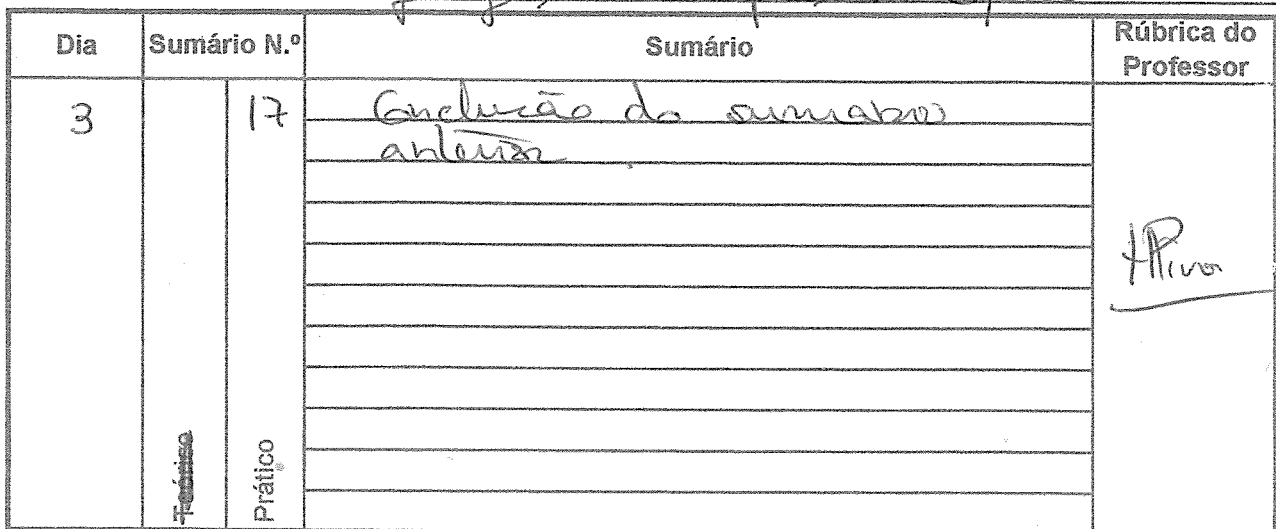 Dia Sumário N.º Sumário Rúbrica do Professor
3 17 Conclusão do sumário
anterior.
Teórico Prático